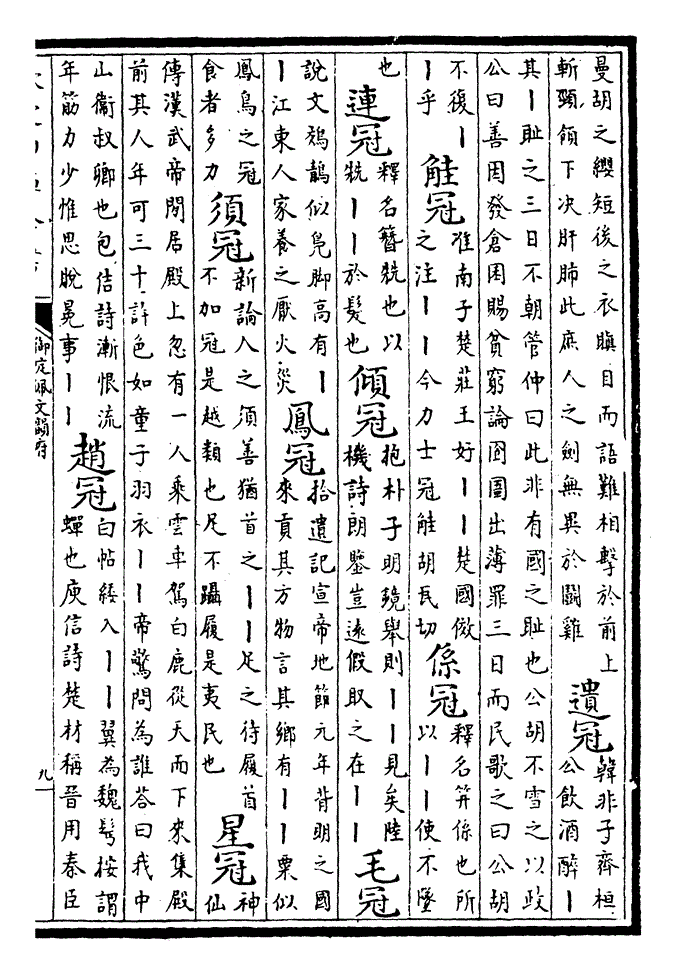 曼胡之纓短後之衣瞋目而語難相擊於前上
斬頸領下决肝肺此庶人之劍無異於鬭雞
遺冠
韓非子齊桓
公飲酒醉丨
其丨耻之三日不朝管仲曰此非有國之耻也公胡不雪之以政
公曰善因發倉囷賜貧窮論囹圄出薄罪三日而民歌之曰公胡
不復丨
丨乎
觟冠
淮南子楚莊王好丨丨楚國傚
之注丨丨今力士冠觟胡瓦切
係冠
釋名笄係也所
以丨丨使不墜
也
連冠
釋名簪兟也以
兟丨丨於髮也
傾冠
抱朴子明鏡舉則丨丨見矣陸
機詩朗鑒豈遠假取之在丨丨
毛冠
說文鵁鶄似鳧脚高有丨
丨江東人家養之厭火災
鳳冠
拾遺記宣帝地節元年背明之國
來貢其方物言其鄉有丨丨粟似
鳳鳥之冠
食者多力
須冠
新論人之須善猶首之丨丨足之待履首
不加冠是越類也足不躡履是夷民也
星冠
神
仙
傳漢武帝閒居殿上忽有一人乘雲車駕白鹿從天而下來集殿
前其人年可三十許色如童子羽衣丨丨帝驚問為誰荅曰我中
山衞叔卿也包佶詩漸恨流
年筋力少惟思脫冕事丨丨
趙冠
白帖綏入丨丨翼為魏鬢按謂
蟬也庾信詩楚材稱晉用春臣
御定佩文韻府
九